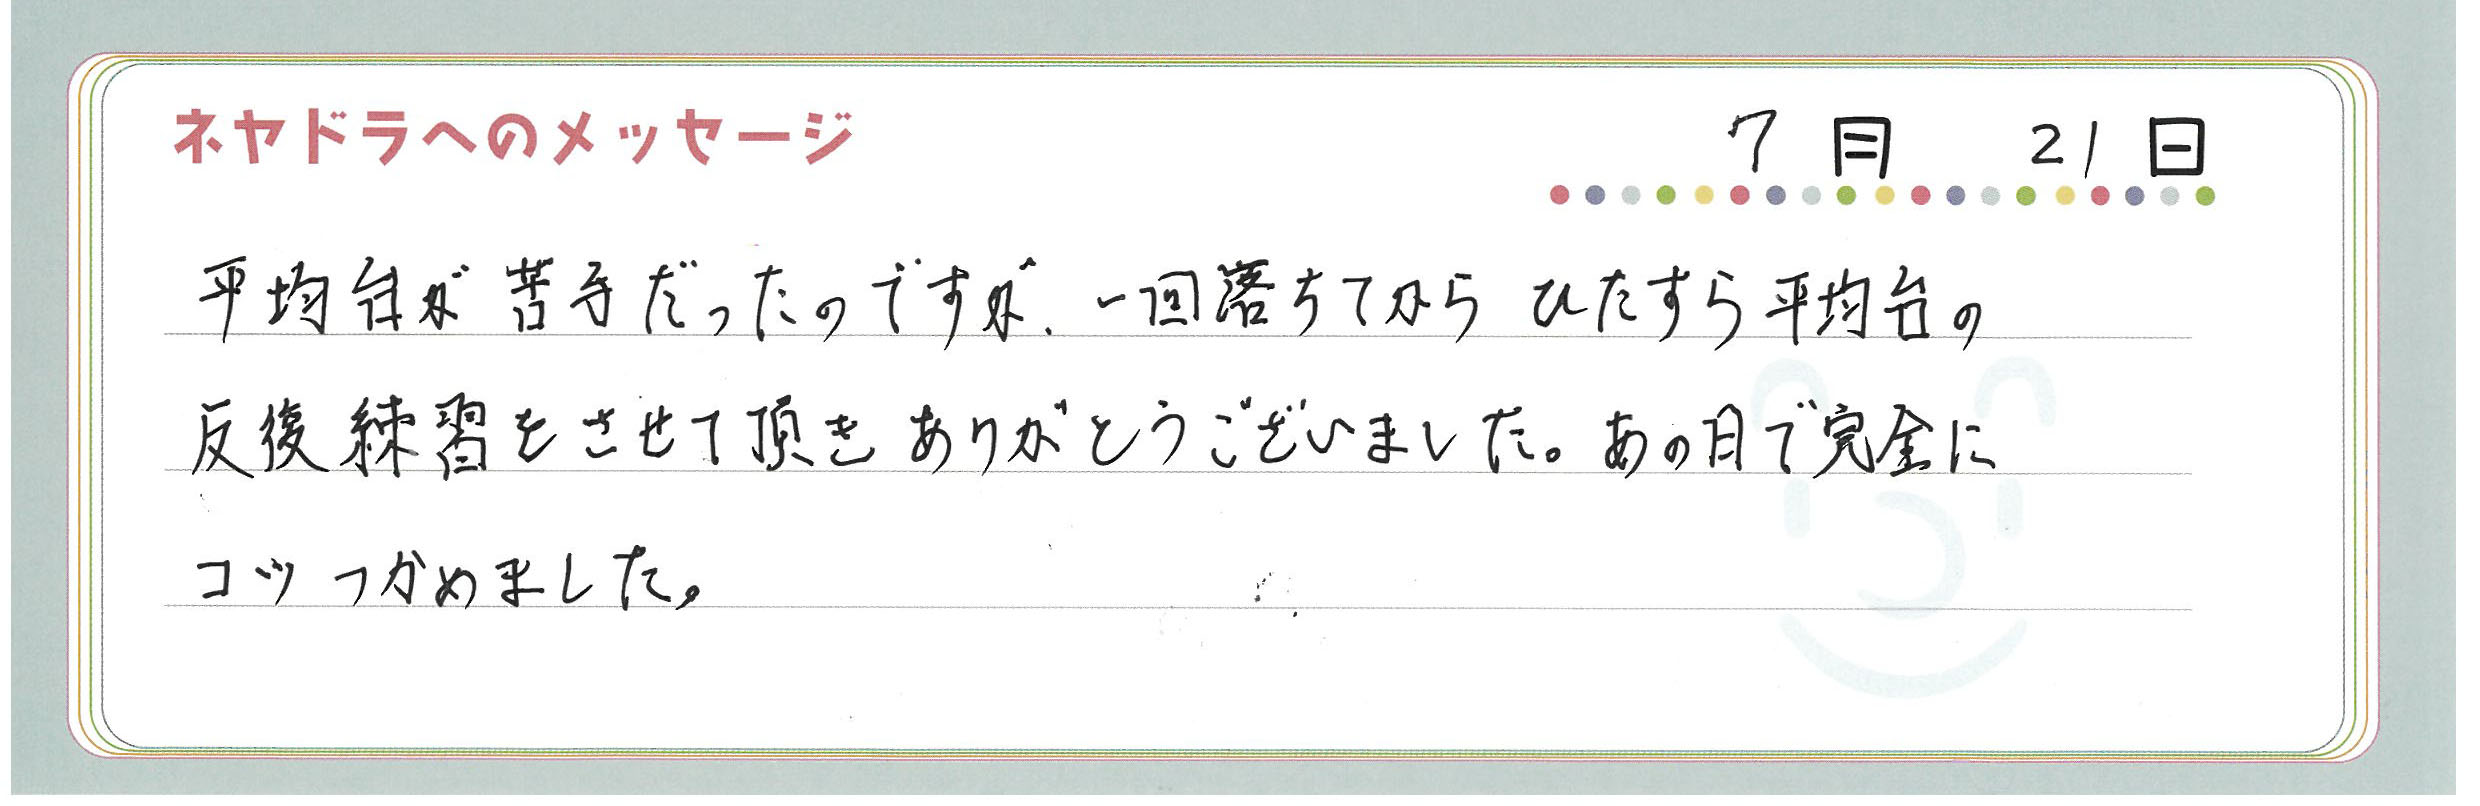 ネヤドラへのメッセージ
7月 21日
平均台が苦手だったのですが、一回落ちてから ひたすら平均台の
反後練習をさせて頂き ありがとうございました。あの日で完全に
コツつかめました。